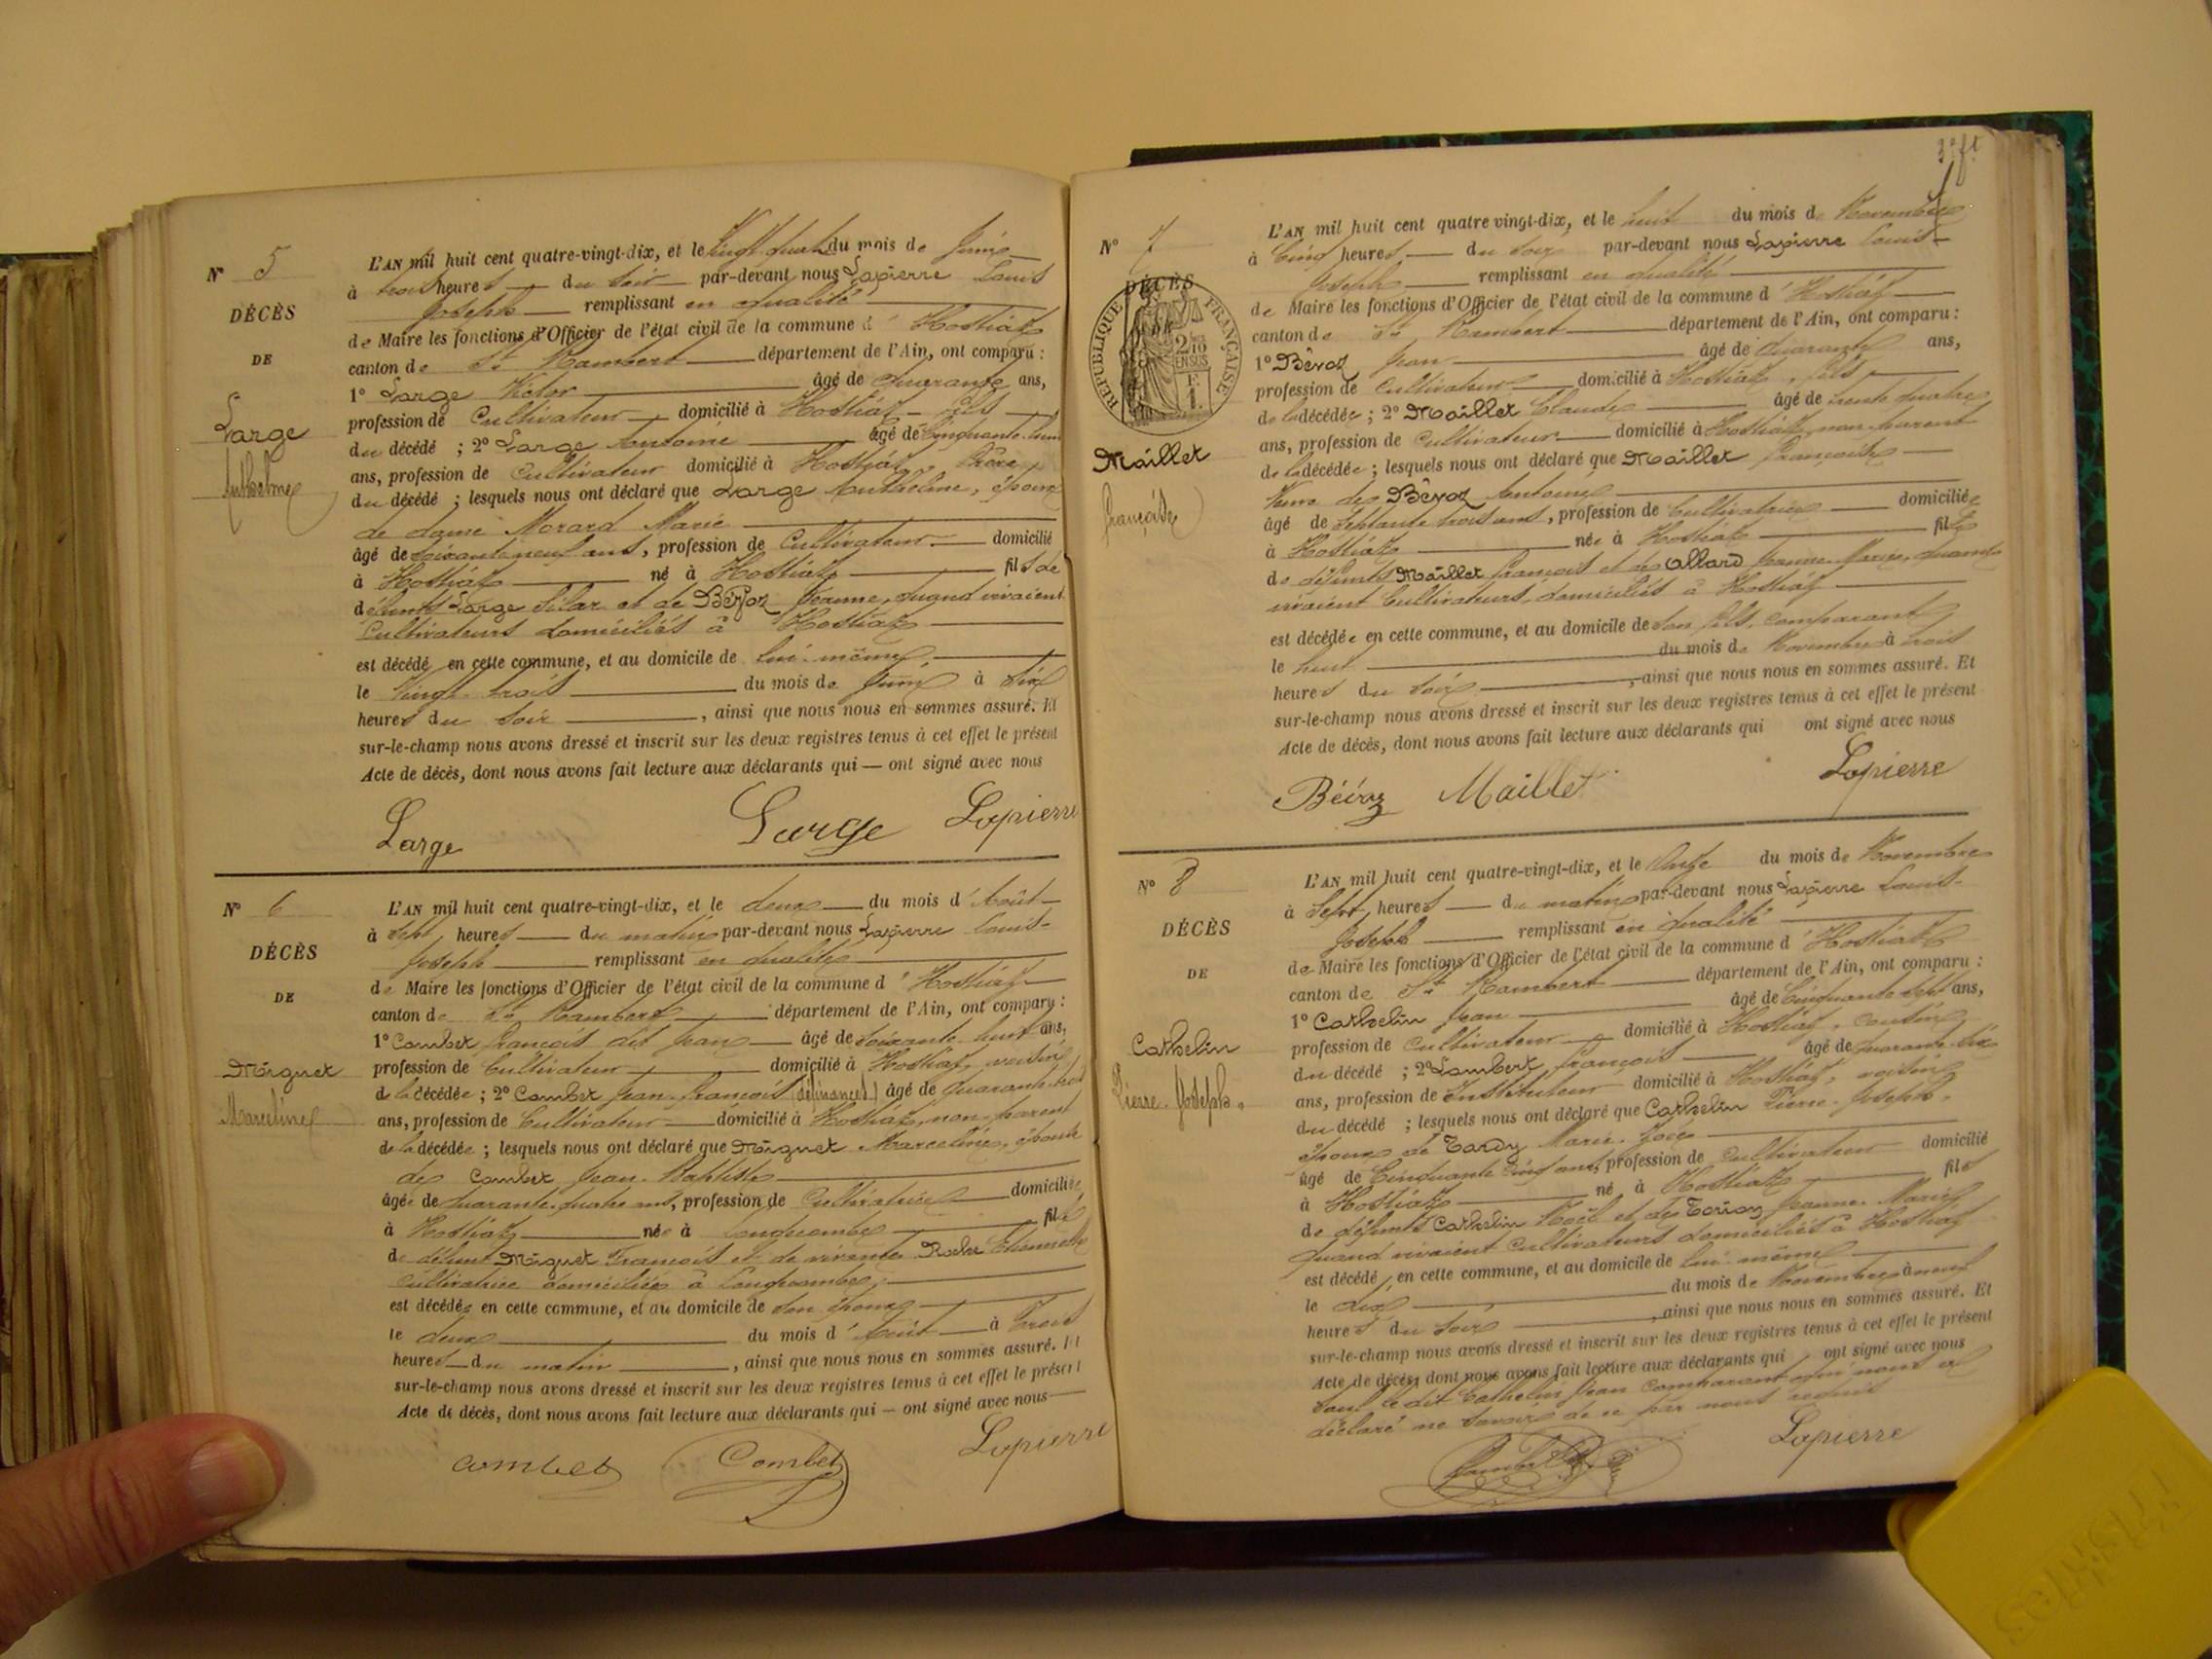 N° 5
DÉCÈS
DE
Large
Anthelme
L'AN mil huit cent quatre-vingt-dix, et le vingt quatre du mois de Juin
à trois heures du soir par-devant nous Lapierre Louis
Joseph remplissant en qualité
de Maire les fonctions d'Officier de l'état civil de la commune d'Hostiaz
canton de St Rambert département de l'Ain, ont comparu :
1° Large Victor âgé de quarante ans,
profession de Cultivateur domicilié à Hostiaz - fils
du décédé ; 2° Large Antoine âgé de Cinquante
ans, profession de Cultivateur domicilié à Hostiaz, frère
du décédé ; lesquels nous ont déclaré que Large Anthelme, époux
de dame Morard Marie
âgé de soixante neuf ans, profession de Cultivateur domicilié
à Hostiaz né à Hostiaz fils de
défunts Large Hilar et de Bévoz Jeanne, quand vivaient
Cultivateurs domiciliés à Hostiaz
est décédé en cette commune, et au domicile de lui-même
le vingt-trois du mois de Juin à six
heures du soir , ainsi que nous nous en sommes assuré. Et
sur-le-champ nous avons dressé et inscrit sur les deux registres tenus à cet effet le présent
Acte de décès, dont nous avons fait lecture aux déclarants qui — ont signé avec nous
Large Large Lapierre
N° 6
DÉCÈS
DE
Miguet
Marceline
L'AN mil huit cent quatre-vingt-dix, et le deux du mois d'Août
à sept heures du matin par-devant nous Lapierre Louis-
Joseph remplissant en qualité
de Maire les fonctions d'Officier de l'état civil de la commune d'Hostiaz
canton de St Rambert département de l'Ain, ont comparu :
1° Combet François dit Jean âgé de soixante-huit ans,
profession de Cultivateur domicilié à Hostiaz, voisin
de la décédée ; 2° Combet Jean-François âgé de quarante
ans, profession de Cultivateur domicilié à Hostiaz, non-parent
de la décédée ; lesquels nous ont déclaré que Miguet Marceline, épouse
de Combet Jean-Baptiste
âgée de quarante-quatre ans, profession de Cultivatrice domiciliée
à Hostiaz née à Longecombe fille
de défunt Miguet François et de vivante Roche Etiennette
Cultivatrice domiciliée à Longecombe
est décédée en cette commune, et au domicile de son époux
le deux du mois d'Août à trois
heures du matin , ainsi que nous nous en sommes assuré. Et
sur-le-champ nous avons dressé et inscrit sur les deux registres tenus à cet effet le présent
Acte de décès, dont nous avons fait lecture aux déclarants qui — ont signé avec nous
Combet Combet Lapierre
3e ft
N° 7
DÉCÈS
REPUBLIQUE FRANÇAISE
2/10 EN SUS
Maillet
Françoise
L'AN mil huit cent quatre vingt-dix, et le huit du mois de Novembre
à Cinq heures du soir par-devant nous Lapierre Louis-
Joseph remplissant en qualité
de Maire les fonctions d'Officier de l'état civil de la commune d'Hostiaz
canton de St Rambert département de l'Ain, ont comparu :
1° Bévoz Jean âgé de quarante ans,
profession de Cultivateur domicilié à Hostiaz, fils
de la décédée ; 2° Maillet Claude âgé de trente quatre
ans, profession de Cultivateur domicilié à Hostiaz, non-parent
de la décédée ; lesquels nous ont déclaré que Maillet Françoise
Veuve de Bévoz Antoine
âgé de septante trois ans, profession de Cultivatrice domiciliée
à Hostiaz née à Hostiaz fille
de défunts Maillet François et de Allard Jeanne-Marie, quand
vivaient Cultivateurs, domiciliés à Hostiaz
est décédée en cette commune, et au domicile de son fils, comparant
le huit du mois de Novembre à trois
heures du soir , ainsi que nous nous en sommes assuré. Et
sur-le-champ nous avons dressé et inscrit sur les deux registres tenus à cet effet le présent
Acte de décès, dont nous avons fait lecture aux déclarants qui ont signé avec nous
Bévoz Maillet Lapierre
N° 8
DÉCÈS
DE
Cathelin
Pierre-Joseph
L'AN mil huit cent quatre-vingt-dix, et le Onze du mois de Novembre
à Sept heures du matin par-devant nous Lapierre Louis-
Joseph remplissant en qualité
de Maire les fonctions d'Officier de l'état civil de la commune d'Hostiaz
canton de St Rambert département de l'Ain, ont comparu :
1° Cathelin Jean âgé de Cinquante sept ans,
profession de Cultivateur domicilié à Hostiaz, cousin
du décédé ; 2° Lambert François âgé de quarante-six
ans, profession de Instituteur domicilié à Hostiaz, voisin
du décédé ; lesquels nous ont déclaré que Cathelin Pierre-Joseph,
époux de Tardy Marie-
âgé de Cinquante cinq ans, profession de Cultivateur domicilié
à Hostiaz né à Hostiaz fils
de défunts Cathelin Noël et de Jeanne-Marie
quand vivaient Cultivateurs domiciliés à Hostiaz
est décédé en cette commune, et au domicile de lui-même
le dix du mois de Novembre à neuf
heures du soir , ainsi que nous nous en sommes assuré. Et
sur-le-champ nous avons dressé et inscrit sur les deux registres tenus à cet effet le présent
Acte de décès, dont nous avons fait lecture aux déclarants qui ont signé avec nous
sauf le dit Cathelin Jean comparant qui nous a
déclaré ne savoir de ce par nous requis
Lambert Lapierre